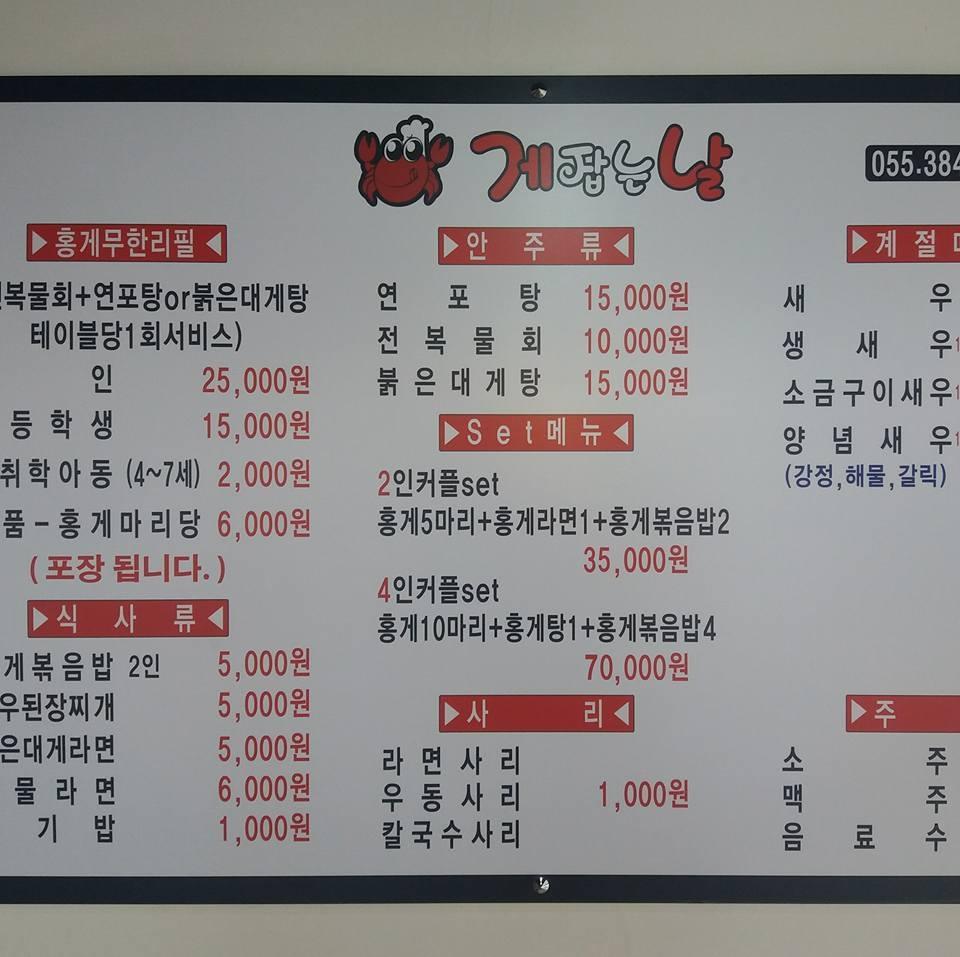 게잡는날
055.384
▶홍게무한리필◀
복물회+연포탕or붉은대게탕
테이블당1회서비스)
인 25,000원
등학생 15,000원
취학아동 (4~7세) 2,000원
품-홍게마리당 6,000원
(포장 됩니다.)
▶식 사 류◀
게볶음밥 2인 5,000원
우된장찌개 5,000원
은대게라면 5,000원
물라면 6,000원
기 밥 1,000원
▶안 주 류◀
연 포 탕 15,000원
전 복 물 회 10,000원
붉은대게탕 15,000원
▶Set메뉴◀
2인커플set
홍게5마리+홍게라면1+홍게볶음밥2
35,000원
4인커플set
홍게10마리+홍게탕1+홍게볶음밥4
70,000원
▶사 리◀
라면사리
우동사리 1,000원
칼국수사리
▶계 절
새 우
생 새 우
소금구이새우
양 념 새 우
(강정,해물,갈릭)
▶주
소 주
맥 주
음 료 수